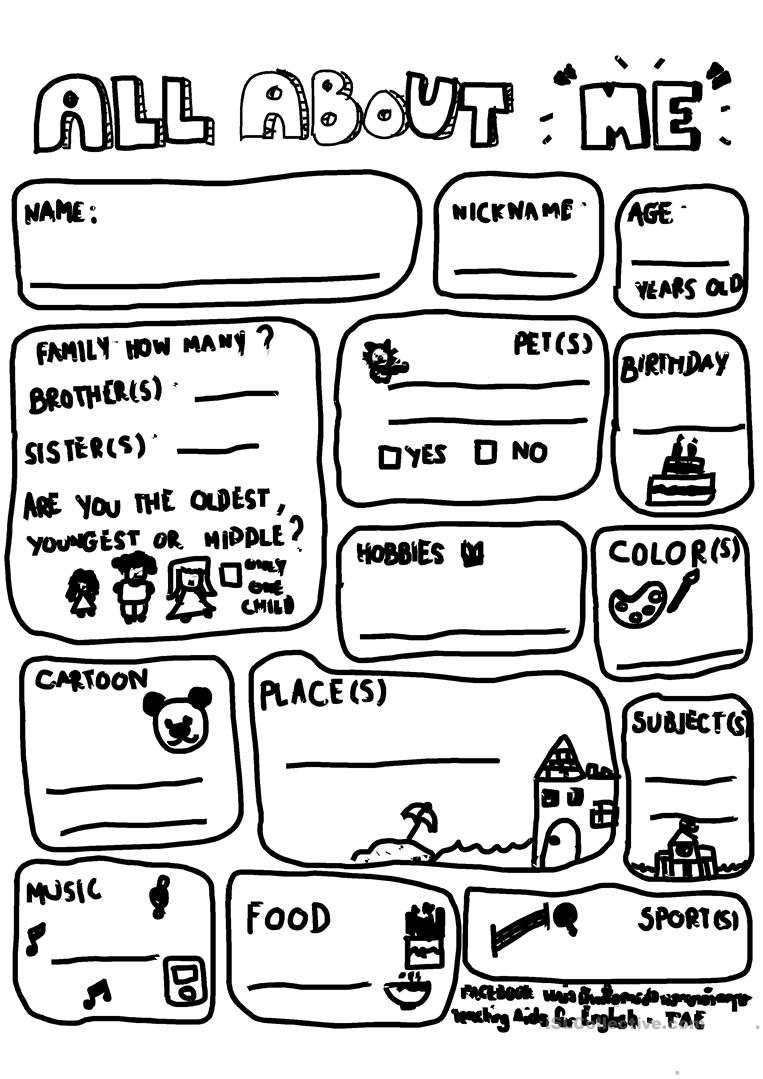 ALL ABOUT ME
NAME:
NICKNAME
AGE
YEARS OLD
FAMILY HOW MANY ?
BROTHER(S)
SISTER(S)
ARE YOU THE OLDEST,
YOUNGEST OR MIDDLE?
ONLY
ONE
CHILD
PET(S)
YES NO
BIRTHDAY
HOBBIES
COLOR(S)
CARTOON
PLACE(S)
SUBJECT(S)
MUSIC
FOOD
SPORT(S)
FACEBOOK
Teaching Aids for English - TAE
iSLCollective.com